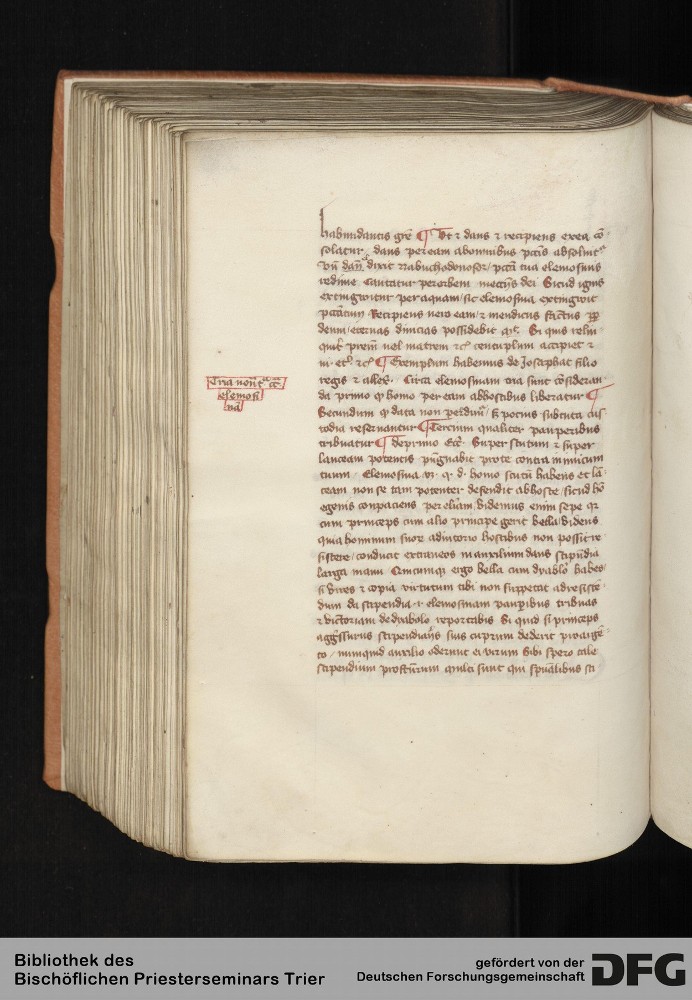 habundantis gr̄e ¶ Ut & dans & recipiens ex ea cō
solatur / dans per eam ab omnibus pctīs absoluitᷣ
Vn̄ dixit nabuchodonosor / pctā tua elemosinis
redime Cantatur per orbem dei Sicud ignis
extingwitur per aquam / sic elemosina extingwit
pctātum Recipiens uero eam / & mendicus factus
deum / eternas diuicias possidebit Si quis relin
quit prēm uel matrem & centuplum accipiet &
¶ Exemplum habemus de Josaphat filio
regis & Circa elemosinam tria sunt cōsideran
da primo qᷓ homo per eam ab hostibus liberatur ¶
Secundum qᷓ data non perditur / pocius sub tuta cus
todia reseruantur ¶ Tercium qualiter pauperibus
tribuatur ¶ de primo Ecc̄ Super scutum & super
lanceam potentis pugnabit pro te contra inimicum
tuum / Elemosina q. d. homo scutū habens et lā
ceam non se tam potenter defendit ab hoste / sicud hō
egenis conpaciens per elīam / videmus enim sepe qᷓ
cum princeps cum alio principe gerit bella / videns
quia hominum suorᷓ adiutorio hostibus non possit re
sistere / conducit extraneos in auxilium dans stipendia
larga manu Cumcunqᷓ ergo bella cum dyabolo habes
si vires & copia virtutum tibi non suppetat ad resistē
dum da stipendia .i. elemosinam pauperibus tribuas
& victoriam de dyabolo reportabis Si quid si princeps
aggressurus stipendiarijs suis cuprum dederit pro argē
to / numquid auxilio aderunt ei virum sibi spero tale
stipendium profuturum multi sunt qui spūalibus sti
Tria nont̄ᵃ cᵃ
elemosi
nā
Bibliothek des
Bischöflichen Priesterseminars Trier
gefördert von der
Deutschen Forschungsgemeinschaft
DFG